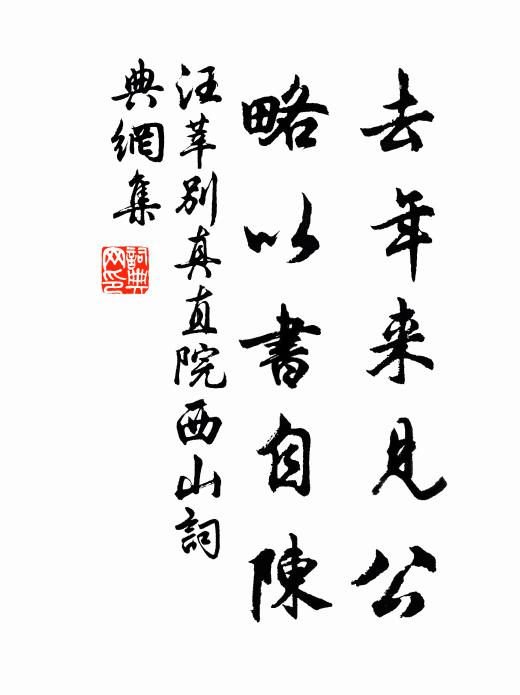 去年来見公
略以書自陳
汪莘別真直院西山詞
典網集
詞典
网印